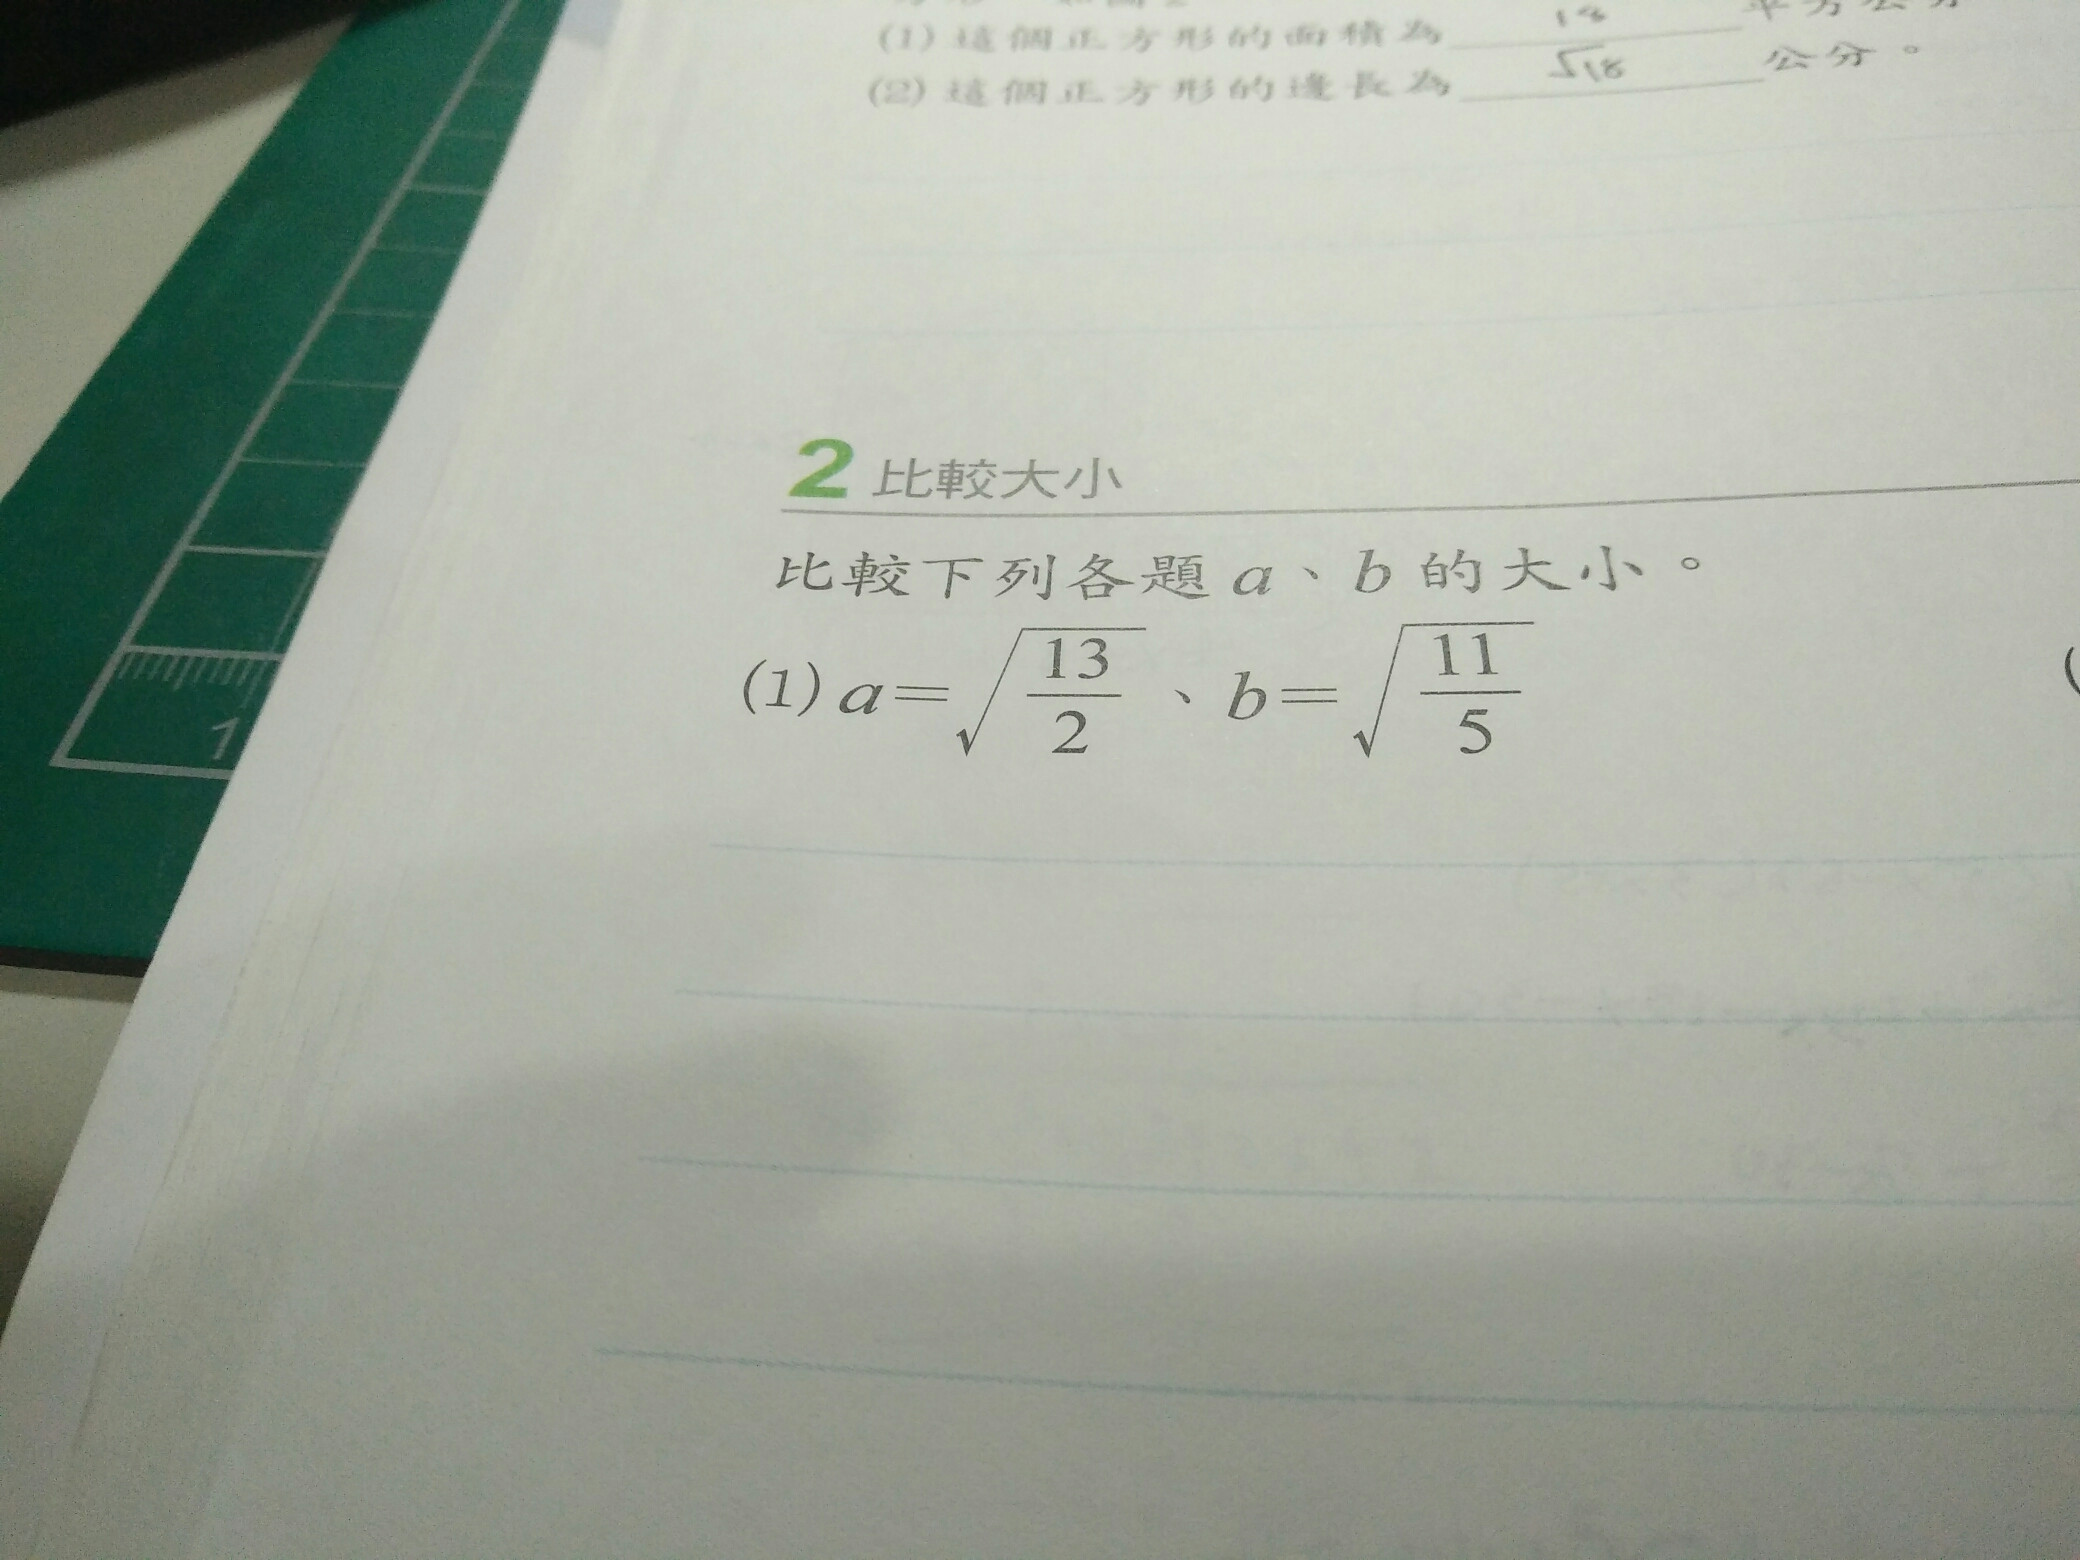 (1) 這個正方形的面積為 18 平方公分
(2) 這個正方形的邊長為 √18 公分。
2 比較大小
比較下列各題 a、b 的大小。
(1) a=√(13/2)、b=√(11/5)
(
1